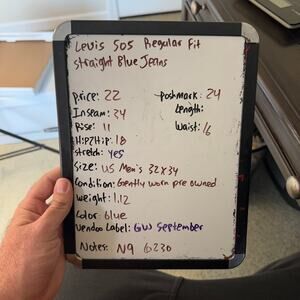 Levis 505 Regular Fit
Straight Blue Jeans
Price: 22
Poshmark: 24
Inseam: 34
Length:
Rise: 11
Waist: 16
Hip2Hip: 18
Stretch: yes
Size: US Men's 32x34
Condition: Gently worn pre owned
Weight: 1.12
Color: blue
Vendoo Label: GW September
Notes: N9 6230